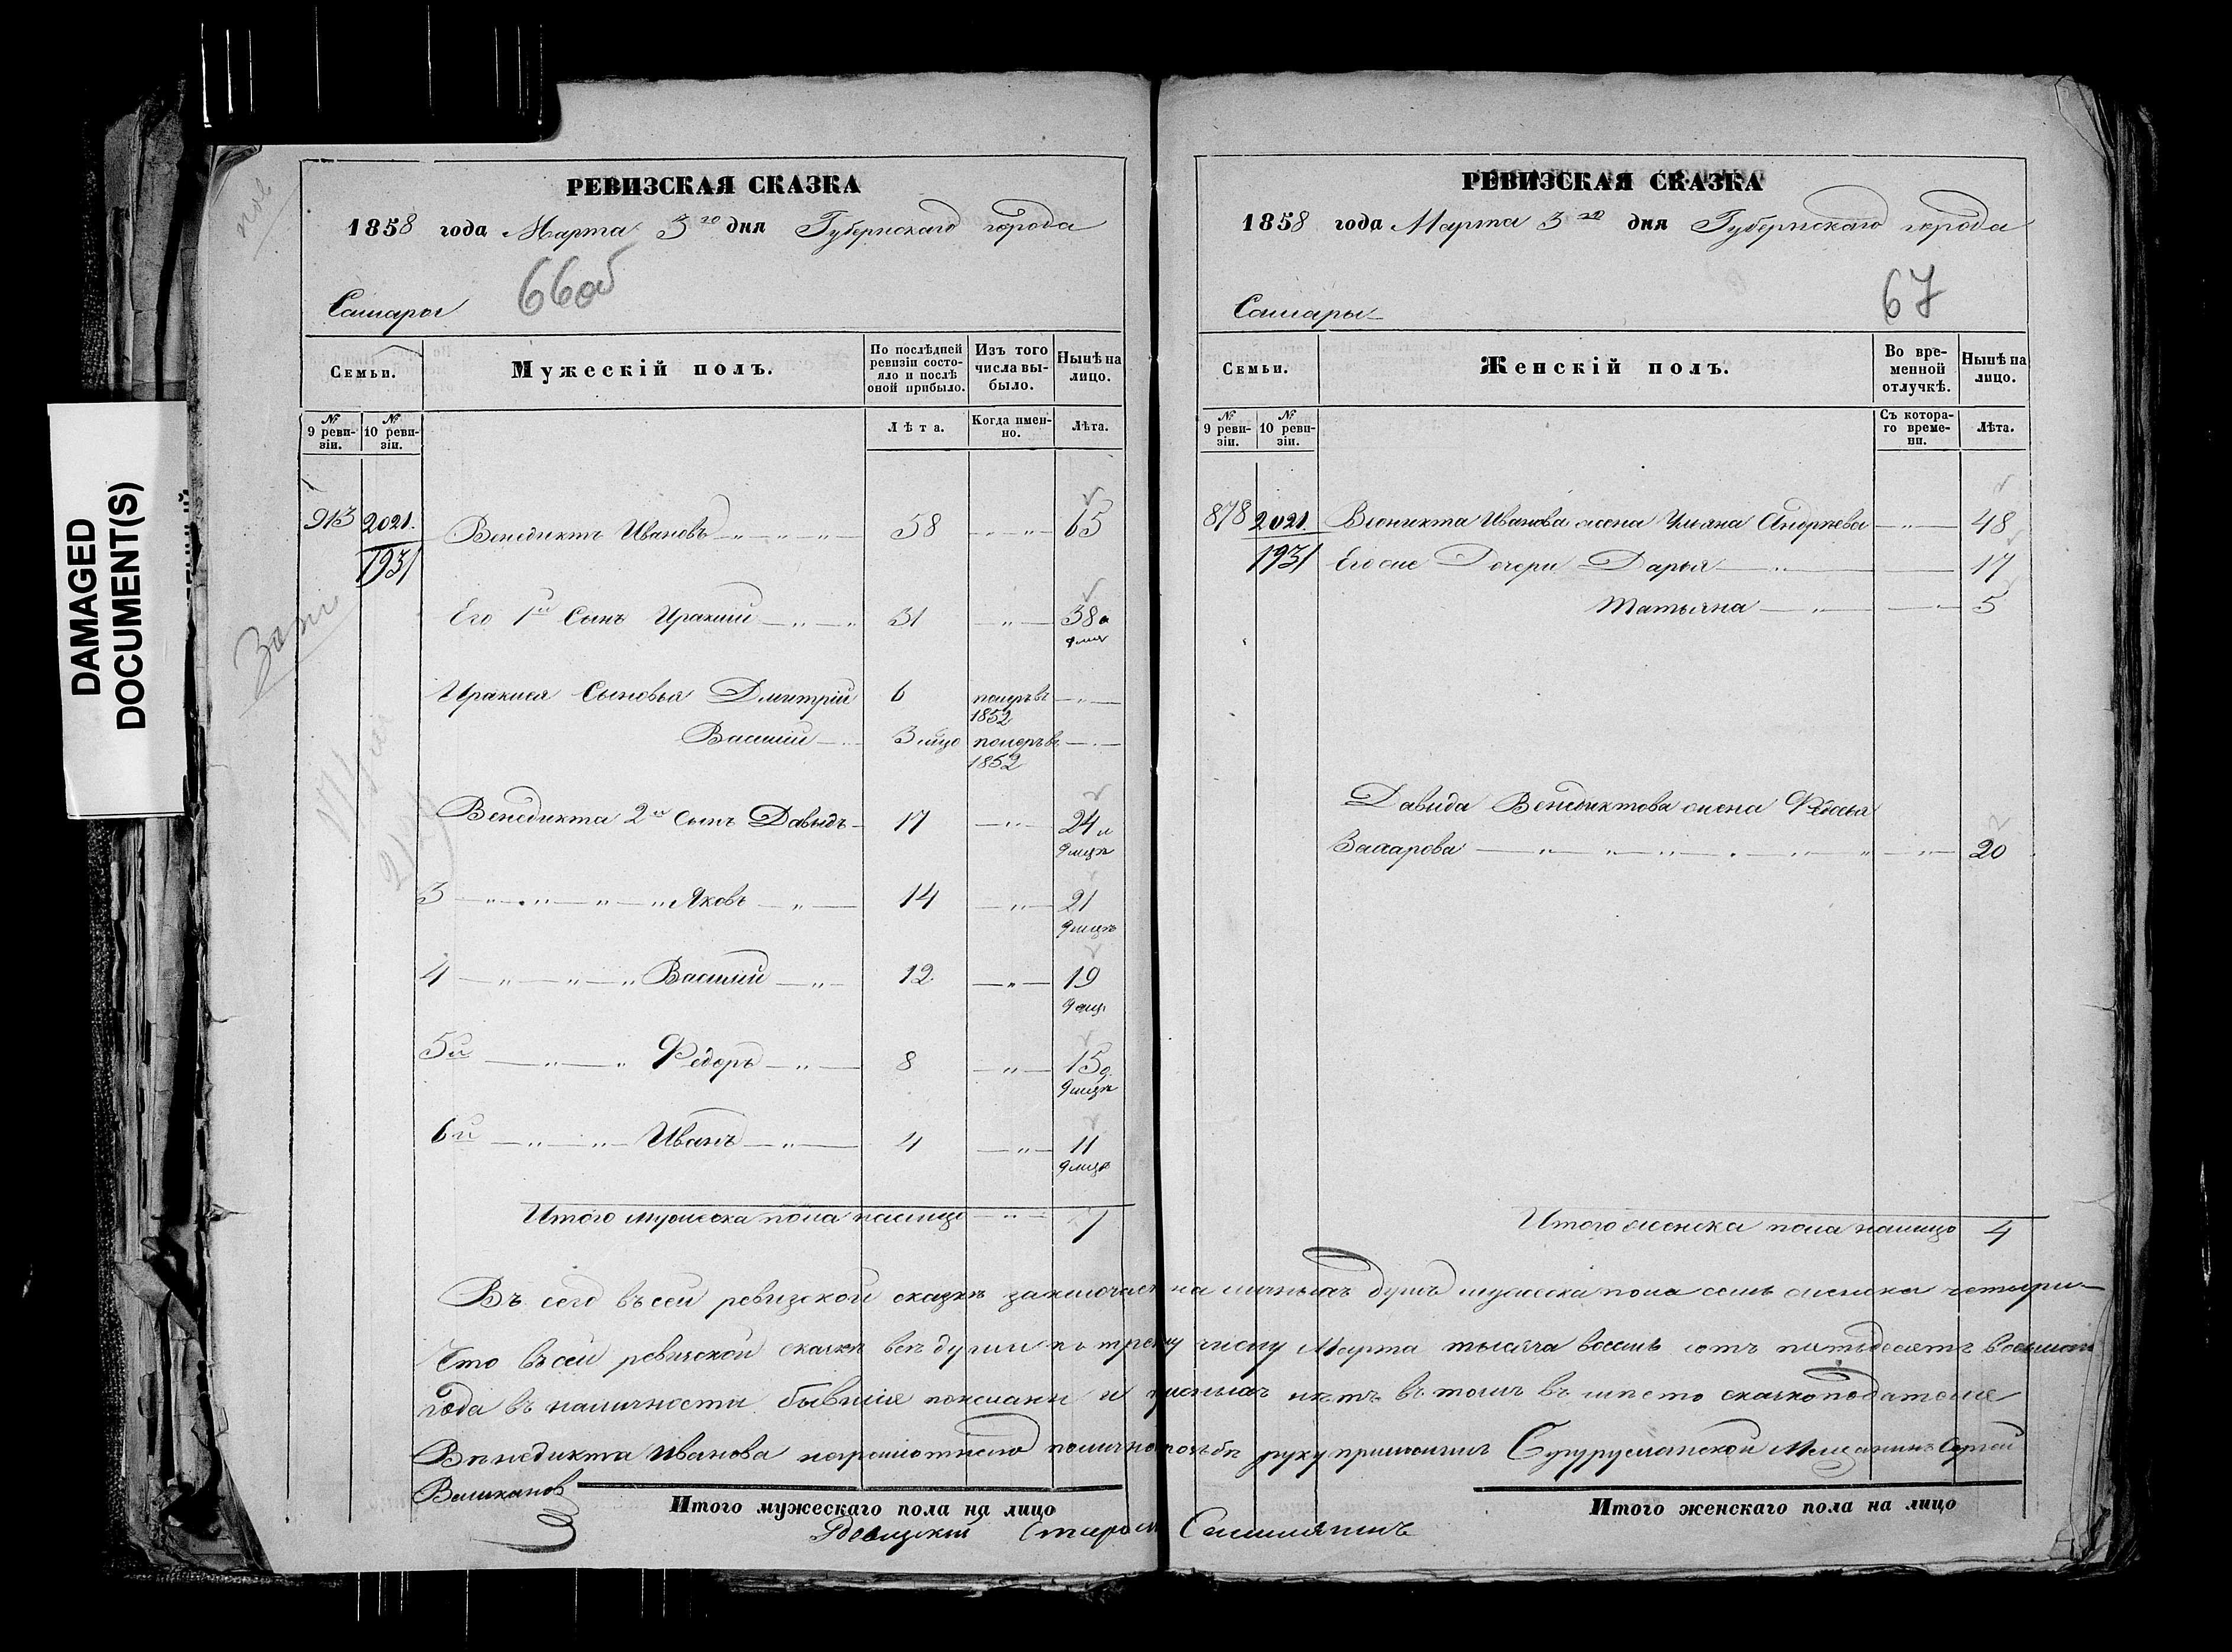 DAMAGED
DOCUMENT(S)
РЕВИЗСКАЯ СКАЗКА
1858 года Марта 3го дня Губернскаго города
66об
Самары
Семьи.
Мужескій полъ.
По послѣдней ревизіи состояло и послѣ оной прибыло.
Изъ того числа выбыло.
Нынѣ на лицо.
№ 9 ревизіи.
№ 10 ревизіи.
Лѣта.
Когда именно.
Лѣта.
913 2021. Венедиктъ Ивановъ 58 65
1931
Его 1й Сынъ Ираклий 31 38
Ираклея Сыновья Дмитрій 6 померъ въ 1852
Василий 3 померъ въ 1852
Венедикта 2й сынъ Давыдъ 17 24
3 Яковъ 14 21
4 Василий 12 19
5й Федоръ 8 15
6й Иванъ 4 11
Итого мужеска пола налицо 7
РЕВИЗСКАЯ СКАЗКА
1858 года Марта 3го дня Губернскаго города
67
Самары
Семьи.
Женскій полъ.
Во временной отлучкѣ.
Нынѣ на лицо.
№ 9 ревизіи.
№ 10 ревизіи.
Съ котораго времени.
Лѣта.
878 2021 Венедикта Иванова жена Ульяна Андреева 48
1931 Его же Дочери Дарья 17
Татьяна 5
Давида Венедиктова жена Федосья
Захарова 20
Итого женска пола налицо 4
въ сей ревизской сказке заключает наличныхъ душъ мужеска пола семь женска четыри
Что въ сей ревизской скаске все души по трему числу Марта тысяча восемь сотъ пятьдесятъ восьмаго
года въ наличности бывшие показаны и нетъ въ томъ въ место сказкоподателя
Венедикта Иванова неграмотнаго по личной прозьбе руку приложилъ Бугурусланской Мещанинъ Сергей
Великановъ
Итого мужескаго пола на лицо
Итого женскаго пола на лицо